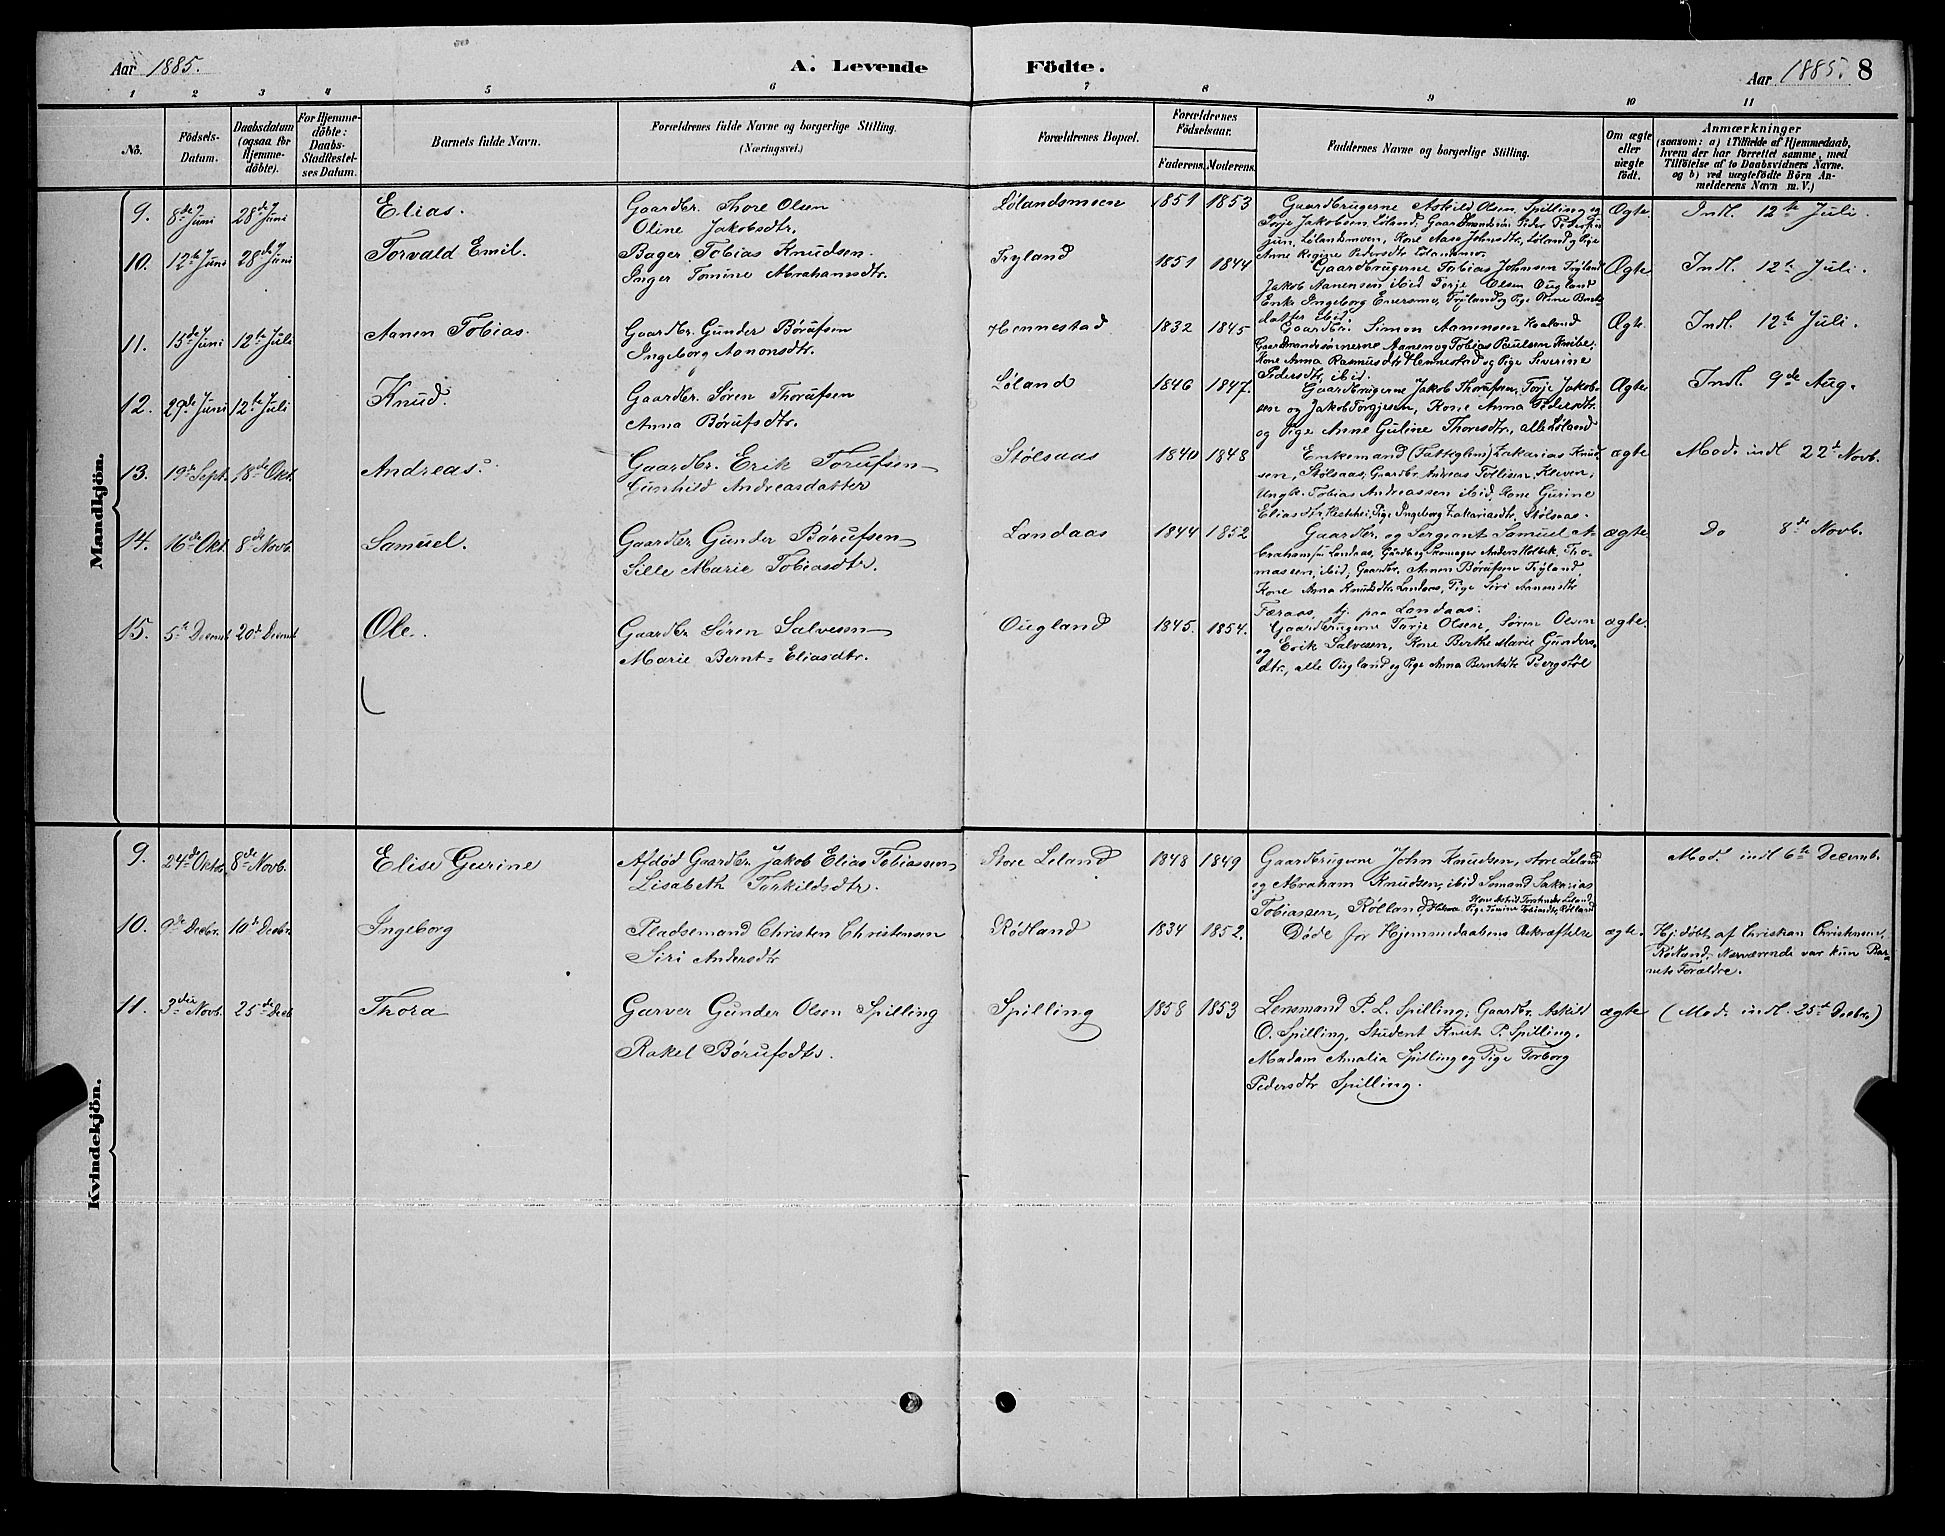 Aar 1885.
A. Levende Födte.
Aar 1885. 8
1 2 3 4 5 6 7 8 9 10 11
No.
Födsels-Datum.
Daabsdatum (ogsaa for Hjemme-döbte).
For Hjemme-döbte: Daabs-Stadfæstel-ses Datum.
Barnets fulde Navn.
Forældrenes fulde Navne og borgerlige Stilling.
(Næringsvei.)
Forældrenes Bopæl.
Forældrenes Födselsaar.
Faderens. Moderens.
Faddernes Navne og borgerlige Stilling.
Om ægte eller uægte födt.
Anmærkninger
(saasom: a) i Tilfælde af Hjemmedaab, hvem der har forrettet samme, med Tilföielse af to Daabsvidners Navne. og b) ved uægtefödte Börn An-melderens Navn m. V.)
Mandkjön.
9. 8de Juni 28de Juni Elias. Gaardbr. Thore Olsen
Oline Jakobsdtr.
Lølandsmoen 1851 1853
Gaardbrugerne Askild Olsen Spilling og
Terje Jakobsen Løland, Gaardmandssøn Peder Peders
jun. Lølandsmoen, Kone Aase Johnsdtr, Løland og Pige
Anne Regine Pedersdtr Lølandsmo.
Ægte Indl. 12te Juli.
10. 12te Juni 28de Juni Torvald Emil. Bager Tobias Knudsen.
Inger Tomine Abrahamsdtr.
Tryland 1851 1844
Gaardbrugerne Tobias Johnsen Tryland
Jakob Aanensen ibid Terje Olsen Ougland
Enke Ingeborg Tryland og Pige
datter ibid.
Ægte Indl. 12te Juli.
11. 15de Juni 12te Juli Aanen Tobias. Gaardbr. Gunder Børufsen
Ingeborg Aanonsdtr.
Hennestad 1832 1845
Gaardbr. Simon Aanensen Kaaland
Gaardmandssønnerne Aanen og Tobias Paulsen Knibe;
Kone Anna Rasmusdtr Hennestad og Pige Severine
Pedersdtr, ibid.
Ægte Indl. 12te Juli.
12. 29de Juni 12te Juli Knud. Gaardbr. Søren Thorufsen
Anna Børufsdtr.
Løland 1846 1847.
Gaardbrugerne Jakob Thorufsen, Terje Jakob-
sen og Jakob Torgjersen, Kone Anna Pedersdtr.
og Pige Anne Guline Thoresdtr., alle Løland
Ægte Indl. 9de Aug.
13. 19de Sept. 18de Okt. Andreas. Gaardbr. Erik Torufsen
Gunhild Andreasdatter
Stølsaas 1840 1848
Enkemand (Fattiglem) Zakarias Knud-
sen, Stølsaas, Gaardbr. Andreas Kleven,
Ungk. Tobias Andreassen ibid, Kone Gurine
Eliasdtr. Pige Ingeborg Zakariasdtr. Stølsaas.
ægte Mod. indl 22de Novb.
14. 16de Okt. 8de Novb. Samuel. Gaardbr. Gunder Børufsen
Sille Marie Tobiasdtr.
Landaas 1844 1852
Gaardbr. og Sergeant Samuel A-
brahamsen Landaas, Gaardbr og Skomager Anders Holbek Tho-
massen, ibid, Gaardbr. Aanen Børufsen Tryland,
Kone Anna Knudsdtr. Landaas, Pige Siri Aanensdtr.
Færaas, tj. paa Landaas.
ægte Do 8de Novb.
15. 5te Decemb 20de Decemb Ole. Gaardbr. Søren Salvesen
Marie Bernt-Eliasdtr.
Ougland 1845. 1854.
Gaardbrugerne Terje Olsen, Søren Olsen
og Erik Salvesen, Kone Berthe Marie Gunders-
dtr, alle Ougland og Pige Anna Berntsdtr Bergstøl
ægte.
Kvindekjön.
9. 24de Oktb. 8de Novb. Elise Gurine Afdød Gaardbr. Jakob Elias Tobiassen
Lisabeth Torkildsdtr.
Store Leland 1848 1849
Gaardbrugerne John Knudsen, store Leland
og Abraham Knudsen, ibid Sømand Sakarias
Tobiassen, Røiland, Kone Astrid Leland
Pige Tomine Tobiasdtr, Røiland
Mod. indl 6te Decemb.
10. 9de Decbr. 10de Decbr. Ingeborg Pladsemand Christen Christensen
Siri Andersdtr
Rødland 1834 1852.
Døde før Hjemmedaabens Bekræftelse
ægte. Hj. døbt af Christian Christensen,
Nærværende var kun Bar-
nets Forældre.
11. 3die Novb. 25de Decb Thora Garver Gunder Olsen Spilling
Rakel Børufsdtr.
Spilling 1858 1853
Lensmand P. L. Spilling, Gaardbr. Askild
O. Spilling, Student Knut P. Spilling.
Madam Amalia Spilling og Pige Torborg
Pedersdtr Spilling.
ægte (Mod. indl. 25de Decbr.)